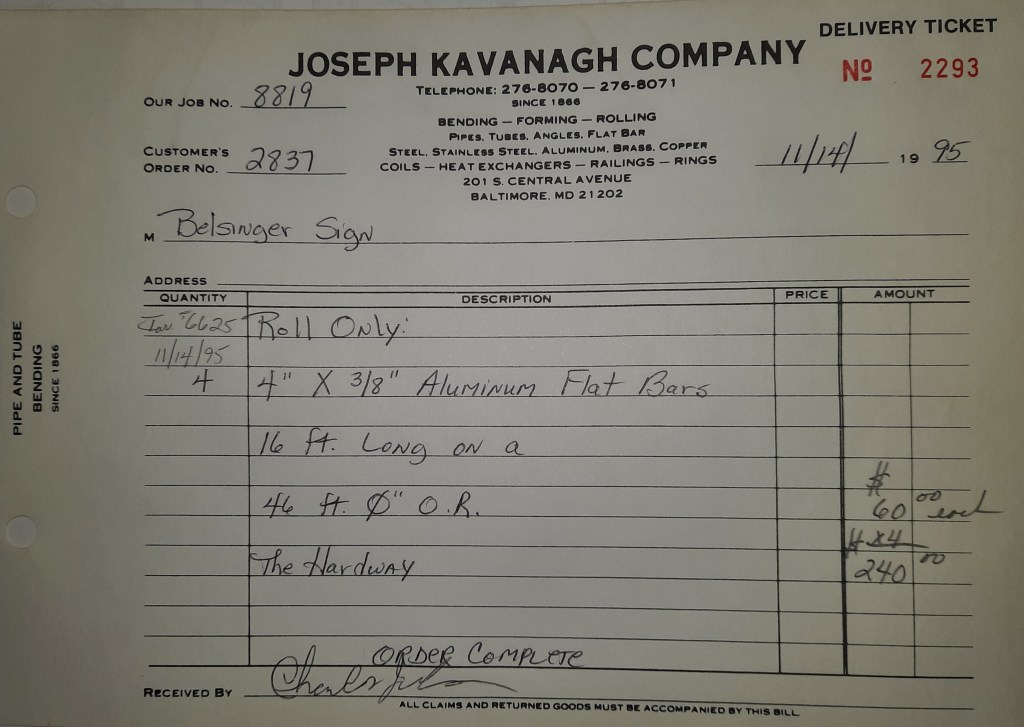 DELIVERY TICKET
JOSEPH KAVANAGH COMPANY
Nº 2293
TELEPHONE: 276-8070 — 276-8071
SINCE 1866
OUR JOB NO. 8819
BENDING — FORMING — ROLLING
PIPES, TUBES, ANGLES, FLAT BAR
STEEL, STAINLESS STEEL, ALUMINUM, BRASS, COPPER
COILS — HEAT EXCHANGERS — RAILINGS — RINGS
201 S. CENTRAL AVENUE
BALTIMORE, MD 21202
CUSTOMER'S
ORDER NO. 2837
11/14/ 19 95
M Belsinger Sign
ADDRESS
QUANTITY DESCRIPTION PRICE AMOUNT
#6625 Roll Only:
11/14/95
4 4" X 3/8" Aluminum Flat Bars
16 ft. Long on a
$
46 ft. Ø" O.R. 60 00 each
# X4
The Hardway 240 00
ORDER COMPLETE
RECEIVED BY
ALL CLAIMS AND RETURNED GOODS MUST BE ACCOMPANIED BY THIS BILL
PIPE AND TUBE
BENDING
SINCE 1866